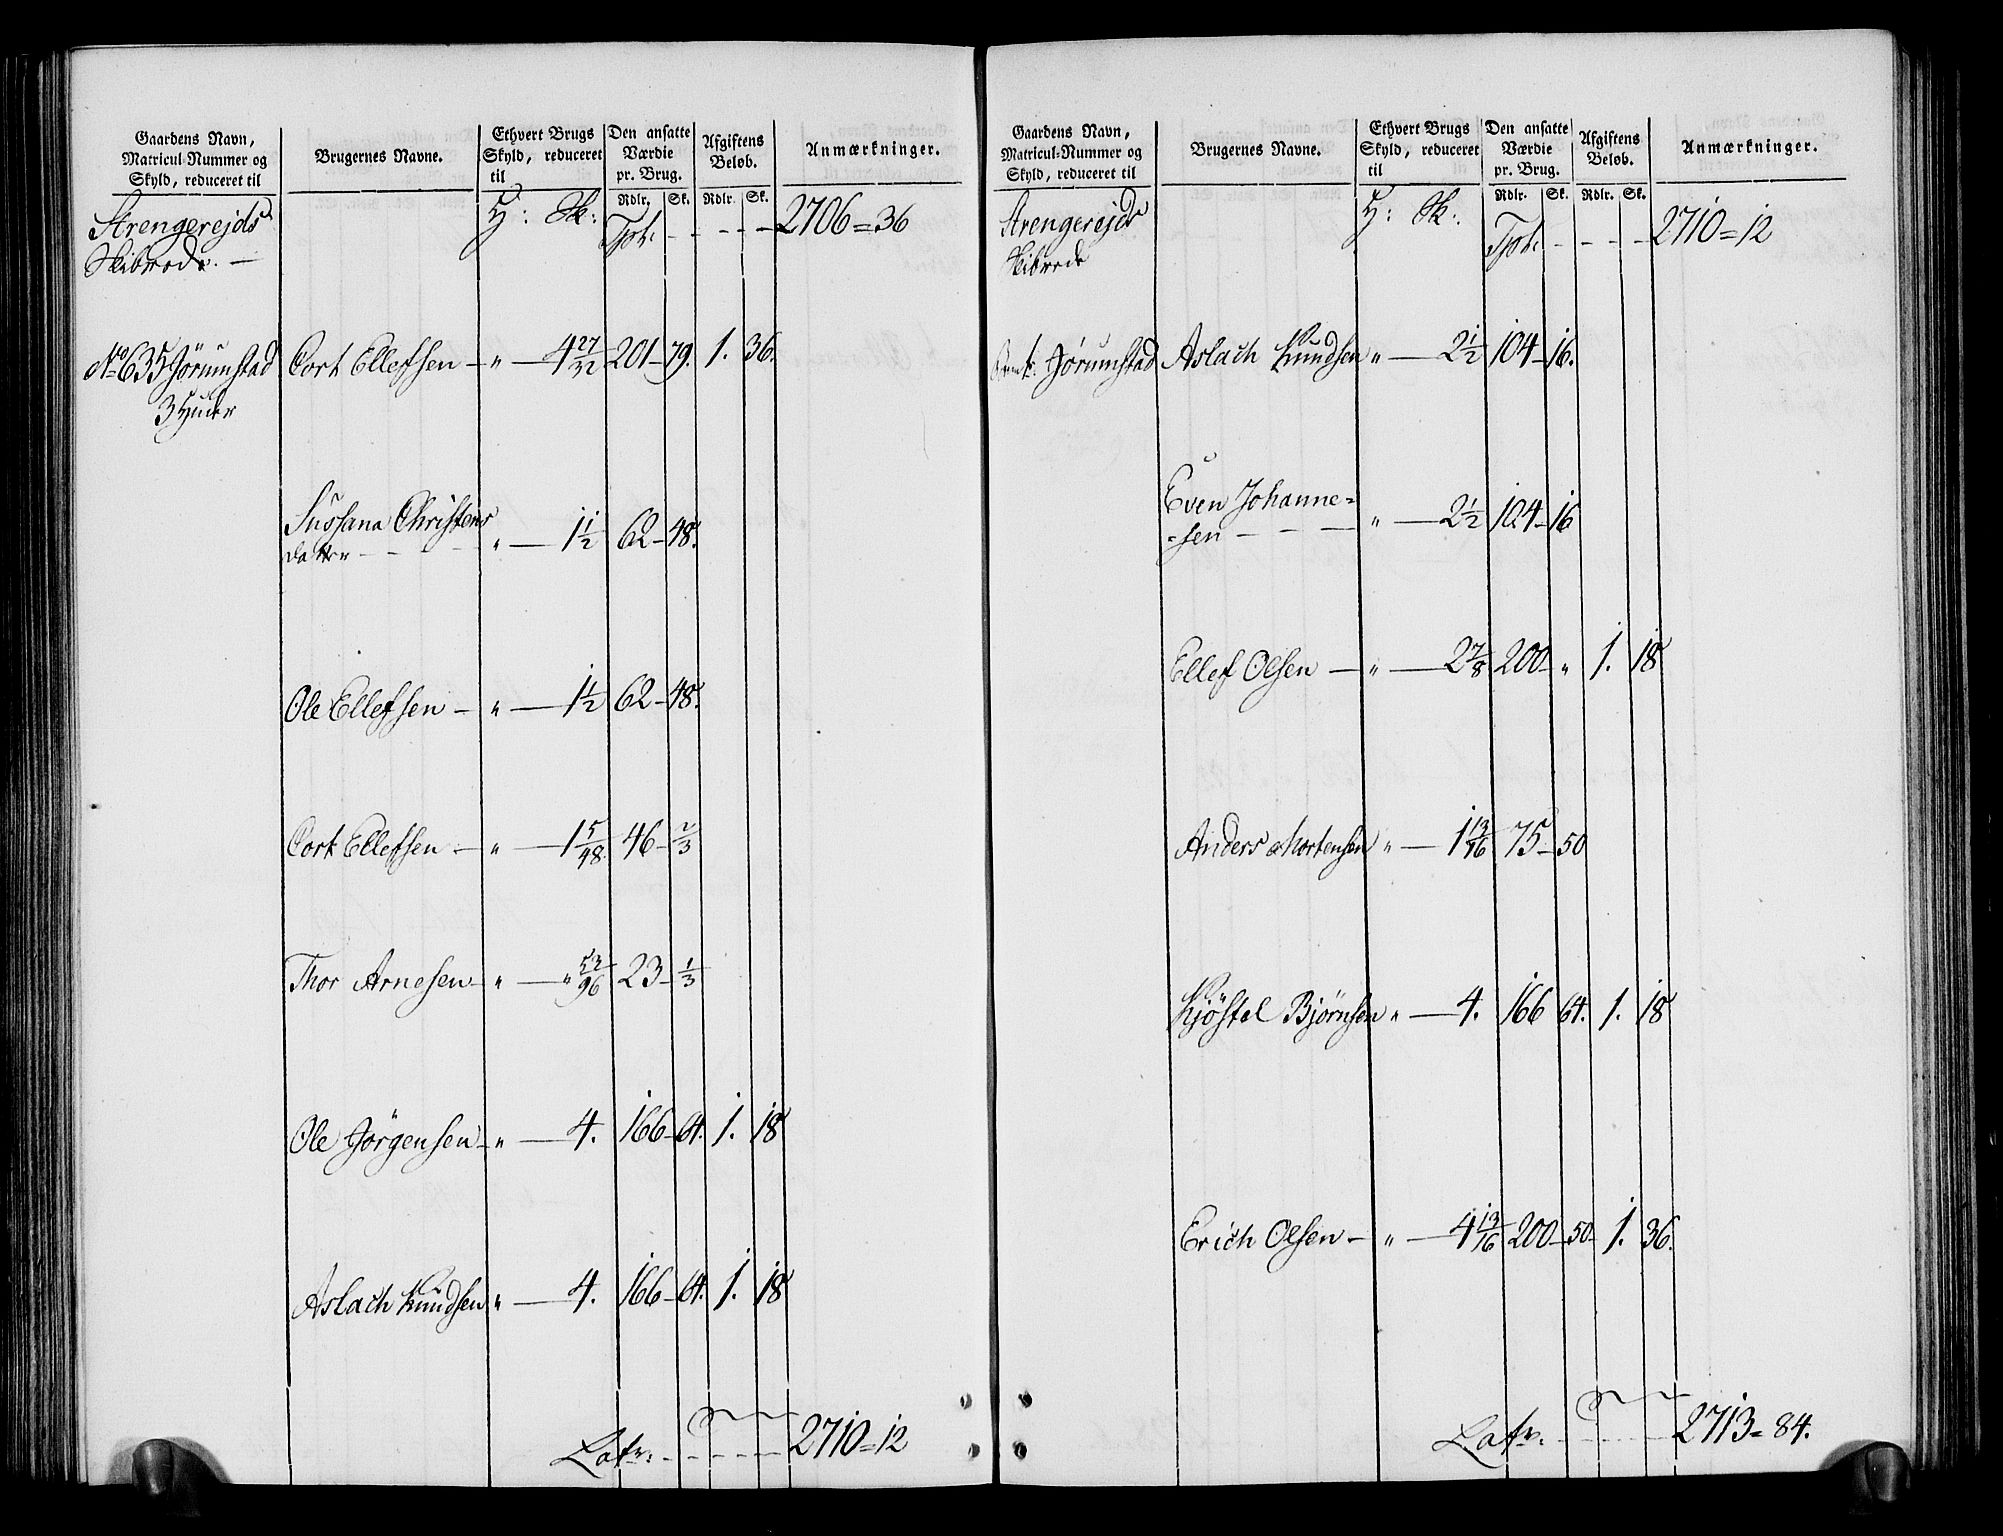 Gaardens Navn,
Matricul-Nummer og
Skyld, reduceret til
Brugernes Navne.
Ethvert Brugs
Skyld, reduceret
til
Den ansatte
Værdie
pr. Brug.
Afgiftens
Beløb.
Anmærkninger.
Rdlr. Sk. Rdlr. Sk.
Strengerejds
Skibrede. —
H: Sk:
Tpt. - - - - 2706=36
No 635 Jörumstad Cort Ellefsen — " — 4 27/32 201-79. 1. 36.
3 Huder
Sussana Christens
datter - - - - " — 1 1/2 62-48.
Ole Ellefsen — " — 1 1/2 62-48.
Cort Ellefsen — " — 1 5/48. 46- 2/3
Thor Arnesen — " — " 53/96 23- 1/3
Ole Jörgensen — " — 4. 166-64. 1. 18
Aslach Knudsen " — 4. 166-64. 1. 18
Latr: - - - - 2710=12
Gaardens Navn,
Matricul-Nummer og
Skyld, reduceret til
Brugernes Navne.
Ethvert Brugs
Skyld, reduceret
til
Den ansatte
Værdie
pr. Brug.
Afgiftens
Beløb.
Anmærkninger.
Rdlr. Sk. Rdlr. Sk.
Strengerejds
Skibrede
H: Sk:
Tpt. - - - - 2710=12
Jörumstad Aslach Knudsen " — 2 1/2 104-16.
Even Johanne=
=sen - - - " — 2 1/2 104-16
Ellef Olsen — " — 2 7/8 200- " 1. 18
Anders Mortensen " — 1 13/16 75-50
Kjöstel Björnsen " — 4. 166 64. 1. 18
Erich Olsen — " — 4 13/16 200-50- 1. 36.
Latr. - - - - 2713=84.